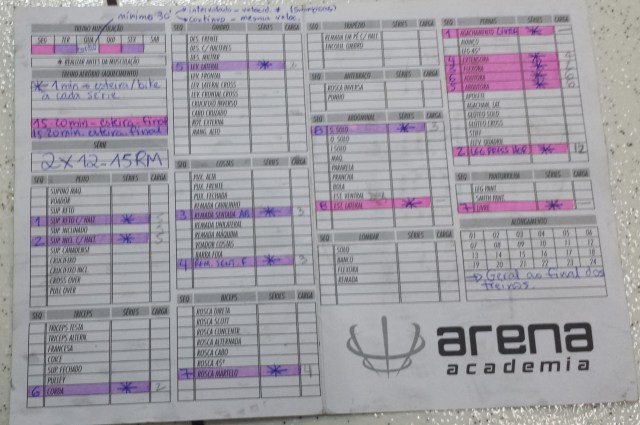 mínimo 30'
contínuo - mesma veloc.
TREINO MUSCULAÇÃO
SEG TER QUA QUI SEX SAB
REALIZAR ANTES DA MUSCULAÇÃO
TREINO AERÓBIO (AQUECIMENTO)
* 1 min - esteira/bike
a cada série
15-20 min - esteira - final
15-20 min esteira final
SÉRIE
2x12-15RM
SEQ PEITO SÉRIES CARGA
SUPINO MAQ
VOADOR
SUP. RETO
1 SUP. RETO C/ HALT. *
SUP. INCLINADO
2 SUP. INCL. C/ HALT. *
SUP. CANADENSE
CRUCIFIXO
CRUCIFIXO INCL.
CROSS OVER
PULL OVER
SEQ TRICEPS SÉRIES CARGA
TRICEPS TESTA
TRICEPS ALTERN.
FRANCESA
COICE
SUP. FECHADO
PULLEY
6 CORDA * 2
SEQ OMBRO SÉRIES CARGA
DES. FRENTE
DES. C/ HALTERES
DES. MILITAR
5 LEV. LATERAL *
LEV. FRONTAL
LEV. LATERAL CROSS
LEV. FRONTAL CROSS
CRUCIFIXO INVERSO
CABO CRUZADO
ROT. EXTERNA
MANG. ALTO
SEQ COSTAS SÉRIES CARGA
PUX. ALTA
PUX. FRENTE
PUX. FECHADA
REMADA CAVALINHO
3 REMADA SENTADA *
REMADA UNILATERAL
REMADA MÁQUINA
VOADOR COSTAS
BARRA FIXA
4 *
SEQ BICEPS SÉRIES CARGA
ROSCA DIRETA
ROSCA SCOTT
ROSCA CONCENTR.
ROSCA ALTERNADA
ROSCA CABO
ROSCA 45º
7 ROSCA MARTELO * 4
SEQ TRAPÉZIO SÉRIES CARGA
REMADA EM PÉ C/ HALT.
ENCOLH. OMBRO
SEQ ANTEBRAÇO SÉRIES CARGA
ROSCA INVERSA
PUNHO
SEQ ABDOMINAL SÉRIES CARGA
8 S. SOLO *
O. SOLO
I. SOLO
MAQ.
PARAPELA
PRANCHA
BOLA
EST. VENTRAL
8 EST. LATERAL *
SEQ LOMBAR SÉRIES CARGA
SOLO
BANCO
FLEXORA
REMADA
SEQ PERNAS SÉRIES CARGA
1 AGACHAMENTO *
AVANÇO
LEG 45º
EXTENSORA * 4
FLEXORA * 2
ADUTORA * 6
ABDUTORA * 6
AFUNDO
AGACHAM. LAT.
GLÚTEO SOLO
GLÚTEO CROSS
STIFF
2 LEG PRESS HOR * 12
SEQ PANTURRILHA SÉRIES CARGA
LEG PANT.
SMITH PANT.
7 LIVRE *
ALONGAMENTO
01 02 03 04 05 06
07 08 09 10 11 12
13 14 15 16 17 18
19 20 21 22 23 24
Geral ao final dos
treinos
arena
academia